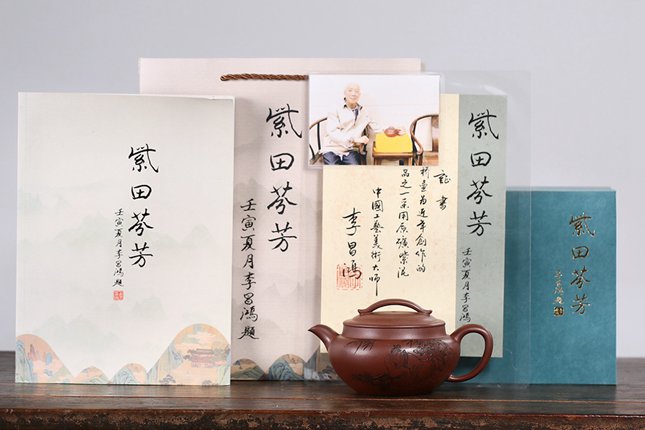 紫田芬芳
壬寅夏月李昌鴻題
紫田芬芳
壬寅夏月李昌鴻題
証書
壺为近年創作的
品之一采用原礦紫泥
中國工藝美術大師
李昌鴻
紫田芬芳
壬寅夏月李昌鴻
紫田芬芳
李昌鴻題